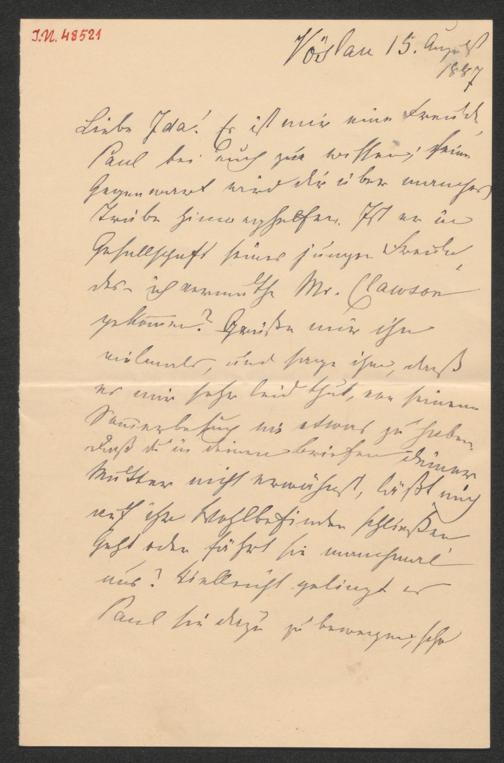 I.N. 48521
Vöslau 15. August
1887
Liebe Ida! Es ist mir eine Freude
Paul bei Euch zu wissen; seine
Gegenwart wird dir über manches
Trübe hinweghelfen. Ist er in
Gesellschaft seines jungen Freundes,
des – ich vermuthe Mr. Clawson
gekommen? Grüße mir ihn
vielmals, und sage ihm, daß
es mir sehr leid thut, von seinem
Sommerbesuch nie etwas zu haben.
Daß du in deinen Briefen deiner
Mutter nicht erwähnst, läßt mich
auf ihr Wohlbefinden schließen
Geht oder fährt sie manchmal
aus? Vielleicht gelingt es
Paul sie dazu zu bewegen, sehr